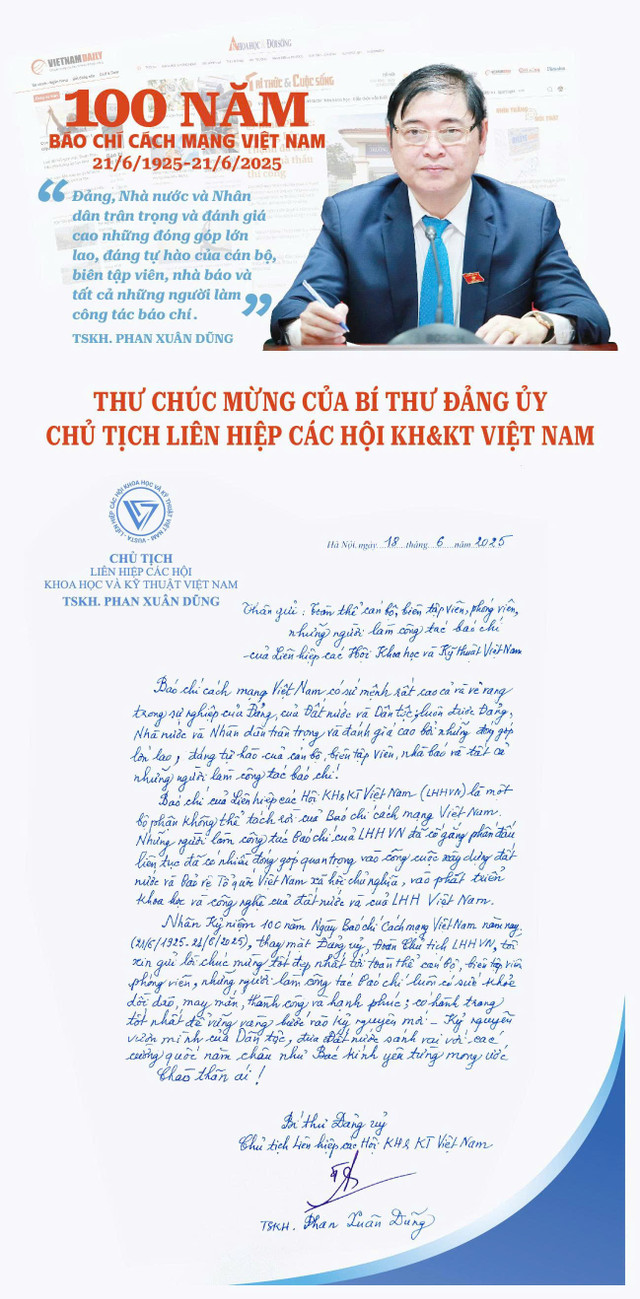 VIETNAMDAILY
KHOA HỌC & ĐỜI SỐNG
TRI THỨC & CUỘC SỐNG
100 NĂM
BÁO CHÍ CÁCH MẠNG VIỆT NAM
21/6/1925-21/6/2025
“Đảng, Nhà nước và Nhân
dân trân trọng và đánh giá
cao những đóng góp lớn
lao, đáng tự hào của cán bộ,
biên tập viên, nhà báo và
tất cả những người làm
công tác báo chí.”
TSKH. PHAN XUÂN DŨNG
THƯ CHÚC MỪNG CỦA BÍ THƯ ĐẢNG ỦY
CHỦ TỊCH LIÊN HIỆP CÁC HỘI KH&KT VIỆT NAM
VUSTA - LIÊN HIỆP CÁC HỘI KHOA HỌC VÀ KỸ THUẬT VIỆT NAM
CHỦ TỊCH
LIÊN HIỆP CÁC HỘI
KHOA HỌC VÀ KỸ THUẬT VIỆT NAM
TSKH. PHAN XUÂN DŨNG
Hà Nội, ngày 18 tháng 6 năm 2025
Thân gửi: Toàn thể cán bộ, biên tập viên, phóng viên,
những người làm công tác báo chí
của Liên hiệp các Hội Khoa học và Kỹ thuật Việt Nam
Báo chí cách mạng Việt Nam có sứ mệnh rất cao cả và vẻ vang
trong sự nghiệp của Đảng, của Đất nước và Dân tộc; luôn được Đảng,
Nhà nước và Nhân dân trân trọng và đánh giá cao bởi những đóng góp
lớn lao, đáng tự hào của cán bộ, biên tập viên, nhà báo và tất cả
những người làm công tác báo chí!
Báo chí của Liên hiệp các Hội KH&KT Việt Nam (LHHVN) là một
bộ phận không thể tách rời của Báo chí cách mạng Việt Nam.
Những người làm công tác Báo chí của LHHVN đã cố gắng phấn đấu
liên tục đã có nhiều đóng góp quan trọng vào công cuộc xây dựng đất
nước và Bảo vệ Tổ quốc Việt Nam xã hội chủ nghĩa, vào phát triển
khoa học và công nghệ của đất nước và của LHH Việt Nam.
Nhân Kỷ niệm 100 năm Ngày Báo chí Cách mạng Việt Nam năm nay
(21/6/1925-21/6/2025), thay mặt Đảng uỷ, Đoàn Chủ tịch LHHVN, tôi
xin gửi lời chúc mừng tốt đẹp nhất tới toàn thể cán bộ, biên tập viên
phóng viên, những người làm công tác báo chí luôn có sức khỏe
dồi dào, may mắn, thành công và hạnh phúc; có hành trang
tốt nhất để vững vàng bước vào kỷ nguyên mới - Kỷ nguyên
vươn mình của Dân tộc, đưa Đất nước sánh vai với các
cường quốc năm châu như Bác kính yêu từng mong ước
Chào thân ái!
Bí thư Đảng uỷ
Chủ tịch Liên hiệp các Hội KH & KT Việt Nam
TSKH. Phan Xuân Dũng